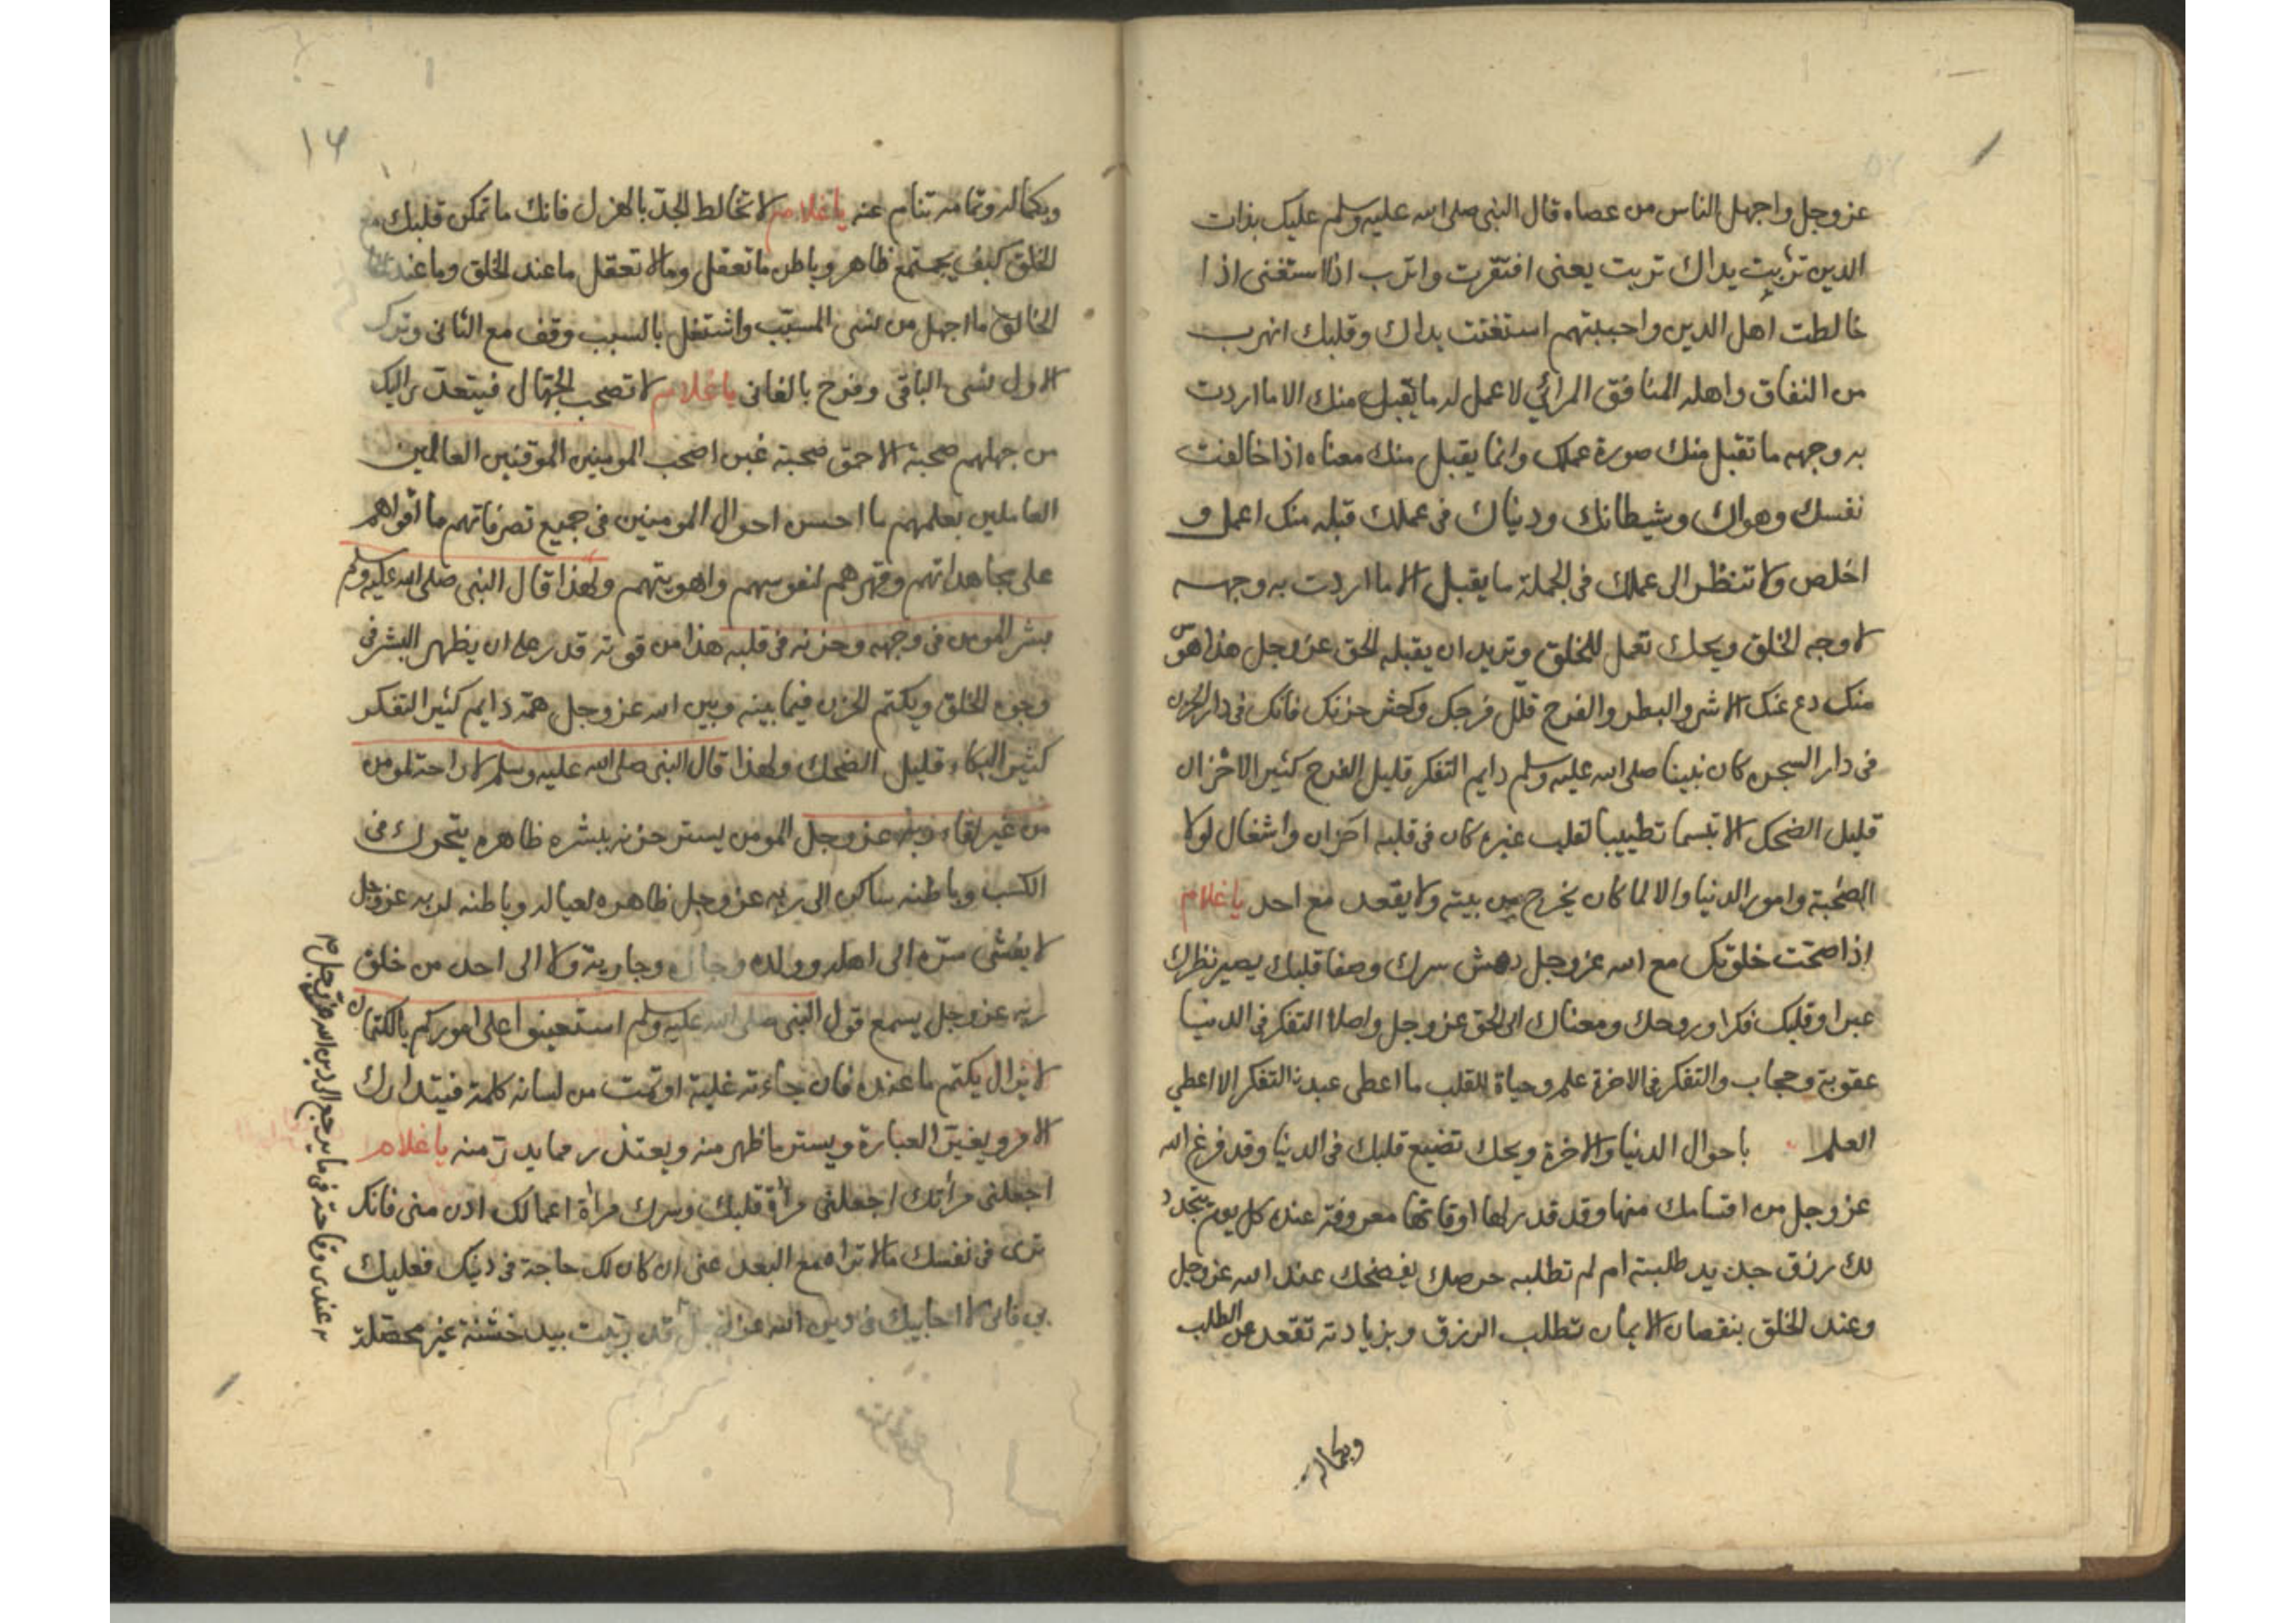 عزوجل واجهل الناس من عصاه قال النبى صلى الله عليه وسلم عليك بذات
الدين تربت يداك تربت يعنى افتقرت واترب اذا استغنى اذا
خالطت اهل الدين واحببتهم استغنت يداك وقلبك انهرب
من النفاق واهله المنافق المرائي لا عمل له ما يقبل منك الا ما اردت
به وجهه ما تقبل منك صورة عملك وانما يقبل منك معناه اذا خالفت
نفسك وهواك وشيطانك ودنياك فى عملك قبله منك اعمل و
اخلص ولا تنظر الى عملك فى الجملة ما يقبل الا ما اردت به وجهه
لا وجه الخلق ويحك تعمل للخلق وتريد ان يقبله الحق عزوجل هذا هوس
منك دع عنك الاشر والبطر والفرح قلل فرحك وكثر حزنك فانك فى دار الحزن
فى دار السجن كان نبينا صلى الله عليه وسلم دايم التفكر قليل الفرح كثير الاحزان
قليل الضحك الا تبسما تطييبا لقلب غيره كان فى قلبه احزان واشغال لولا
الصحبة وامور الدنيا والا لما كان يخرج من بيته ولا يقعد مع احد يا غلام
اذا صحت خلوتك مع الله عزوجل دهش سرك وصفا قلبك يصير نظرك
عبرا وقلبك فكرا وروحك ومعناك الى الحق عزوجل واصلا التفكر فى الدنيا
عقوبة وحجاب والتفكر فى الاخرة علم وحياة للقلب ما اعطى عبد التفكر الا اعطي
العلم باحوال الدنيا والاخرة ويحك تضيع قلبك فى الدنيا وقد فرغ الله
عزوجل من اقسامك منها وقد قدر لها اوقاتها معروفة عنده كل يوم يتجدد
لك رزق جديد طلبته ام لم تطلبه حرصك يفضحك عند الله عزوجل
وعند الخلق بنقصان الايمان تطلب الرزق وبزيادته تقعد عن الطلب
وبكماله
۱۴
وبكماله وتمامه تنام عنه يا غلام لا تخالط الجد بالهزل فانك ما تمكن قلبك مع
الخلق كيف يجتمع ظاهر وباطن ما تعقل وما لا تعقل ما عند الخلق وما عند
الخالق ما اجهل من نسى المسبب واشتغل بالسبب وقف مع الثانى وترك
الاول نسى الباقى وفرح بالفانى يا غلام لا تصحب الجهال فيتعدى اليك
من جهلهم صحبة الاحمق صحبة غبن اصحب المومنين الموقنين العالمين
العاملين بعلمهم ما احسن احوال المومنين فى جميع تصرفاتهم ما اقواهم
على مجاهداتهم وقهرهم لنفوسهم واهويتهم ولهذا قال النبى صلى الله عليه وسلم
بشر المومن فى وجهه وحزنه فى قلبه هذا من قوته قدر على ان يظهر البشر فى
وجوه الخلق ويكتم الحزن فيما بينه وبين الله عزوجل همه دايم كثير التفكر
كثير البكاء قليل الضحك ولهذا قال النبى صلى الله عليه وسلم لا راحة لمومن
من غير لقاء ربه عزوجل المومن يستر حزنه ببشره ظاهره يتحرك فى
الكسب وباطنه ساكن الى ربه عزوجل ظاهره لعياله وباطنه لربه عزوجل
لا يفشى سره الى اهله وولده وجاره وجاريته ولا الى احد من خلق
ربه عزوجل يسمع قول النبى صلى الله عليه وسلم استعينوا على اموركم بالكتمان
لا يزال يكتم ما عنده فان جاءته غلبة او تمت من لسانه كلمة فيتدارك
الامر ويغير العبارة ويستر ما ظهر منه ويعتذر مما بدر منه يا غلام
اجعلنى مرآتك اجعلنى مرآة قلبك وسرك مرآة اعمالك ادن منى فانك
ترى فى نفسك ما لا تراه مع البعد عنى ان كان لك حاجة فى دينك فعليك
بي فانى لا احابيك فى دين الله عزوجل قد ربيت بيد خشنة غير محصلة
عندى وقاحة فى ما يرجع الى دين الله عزوجل